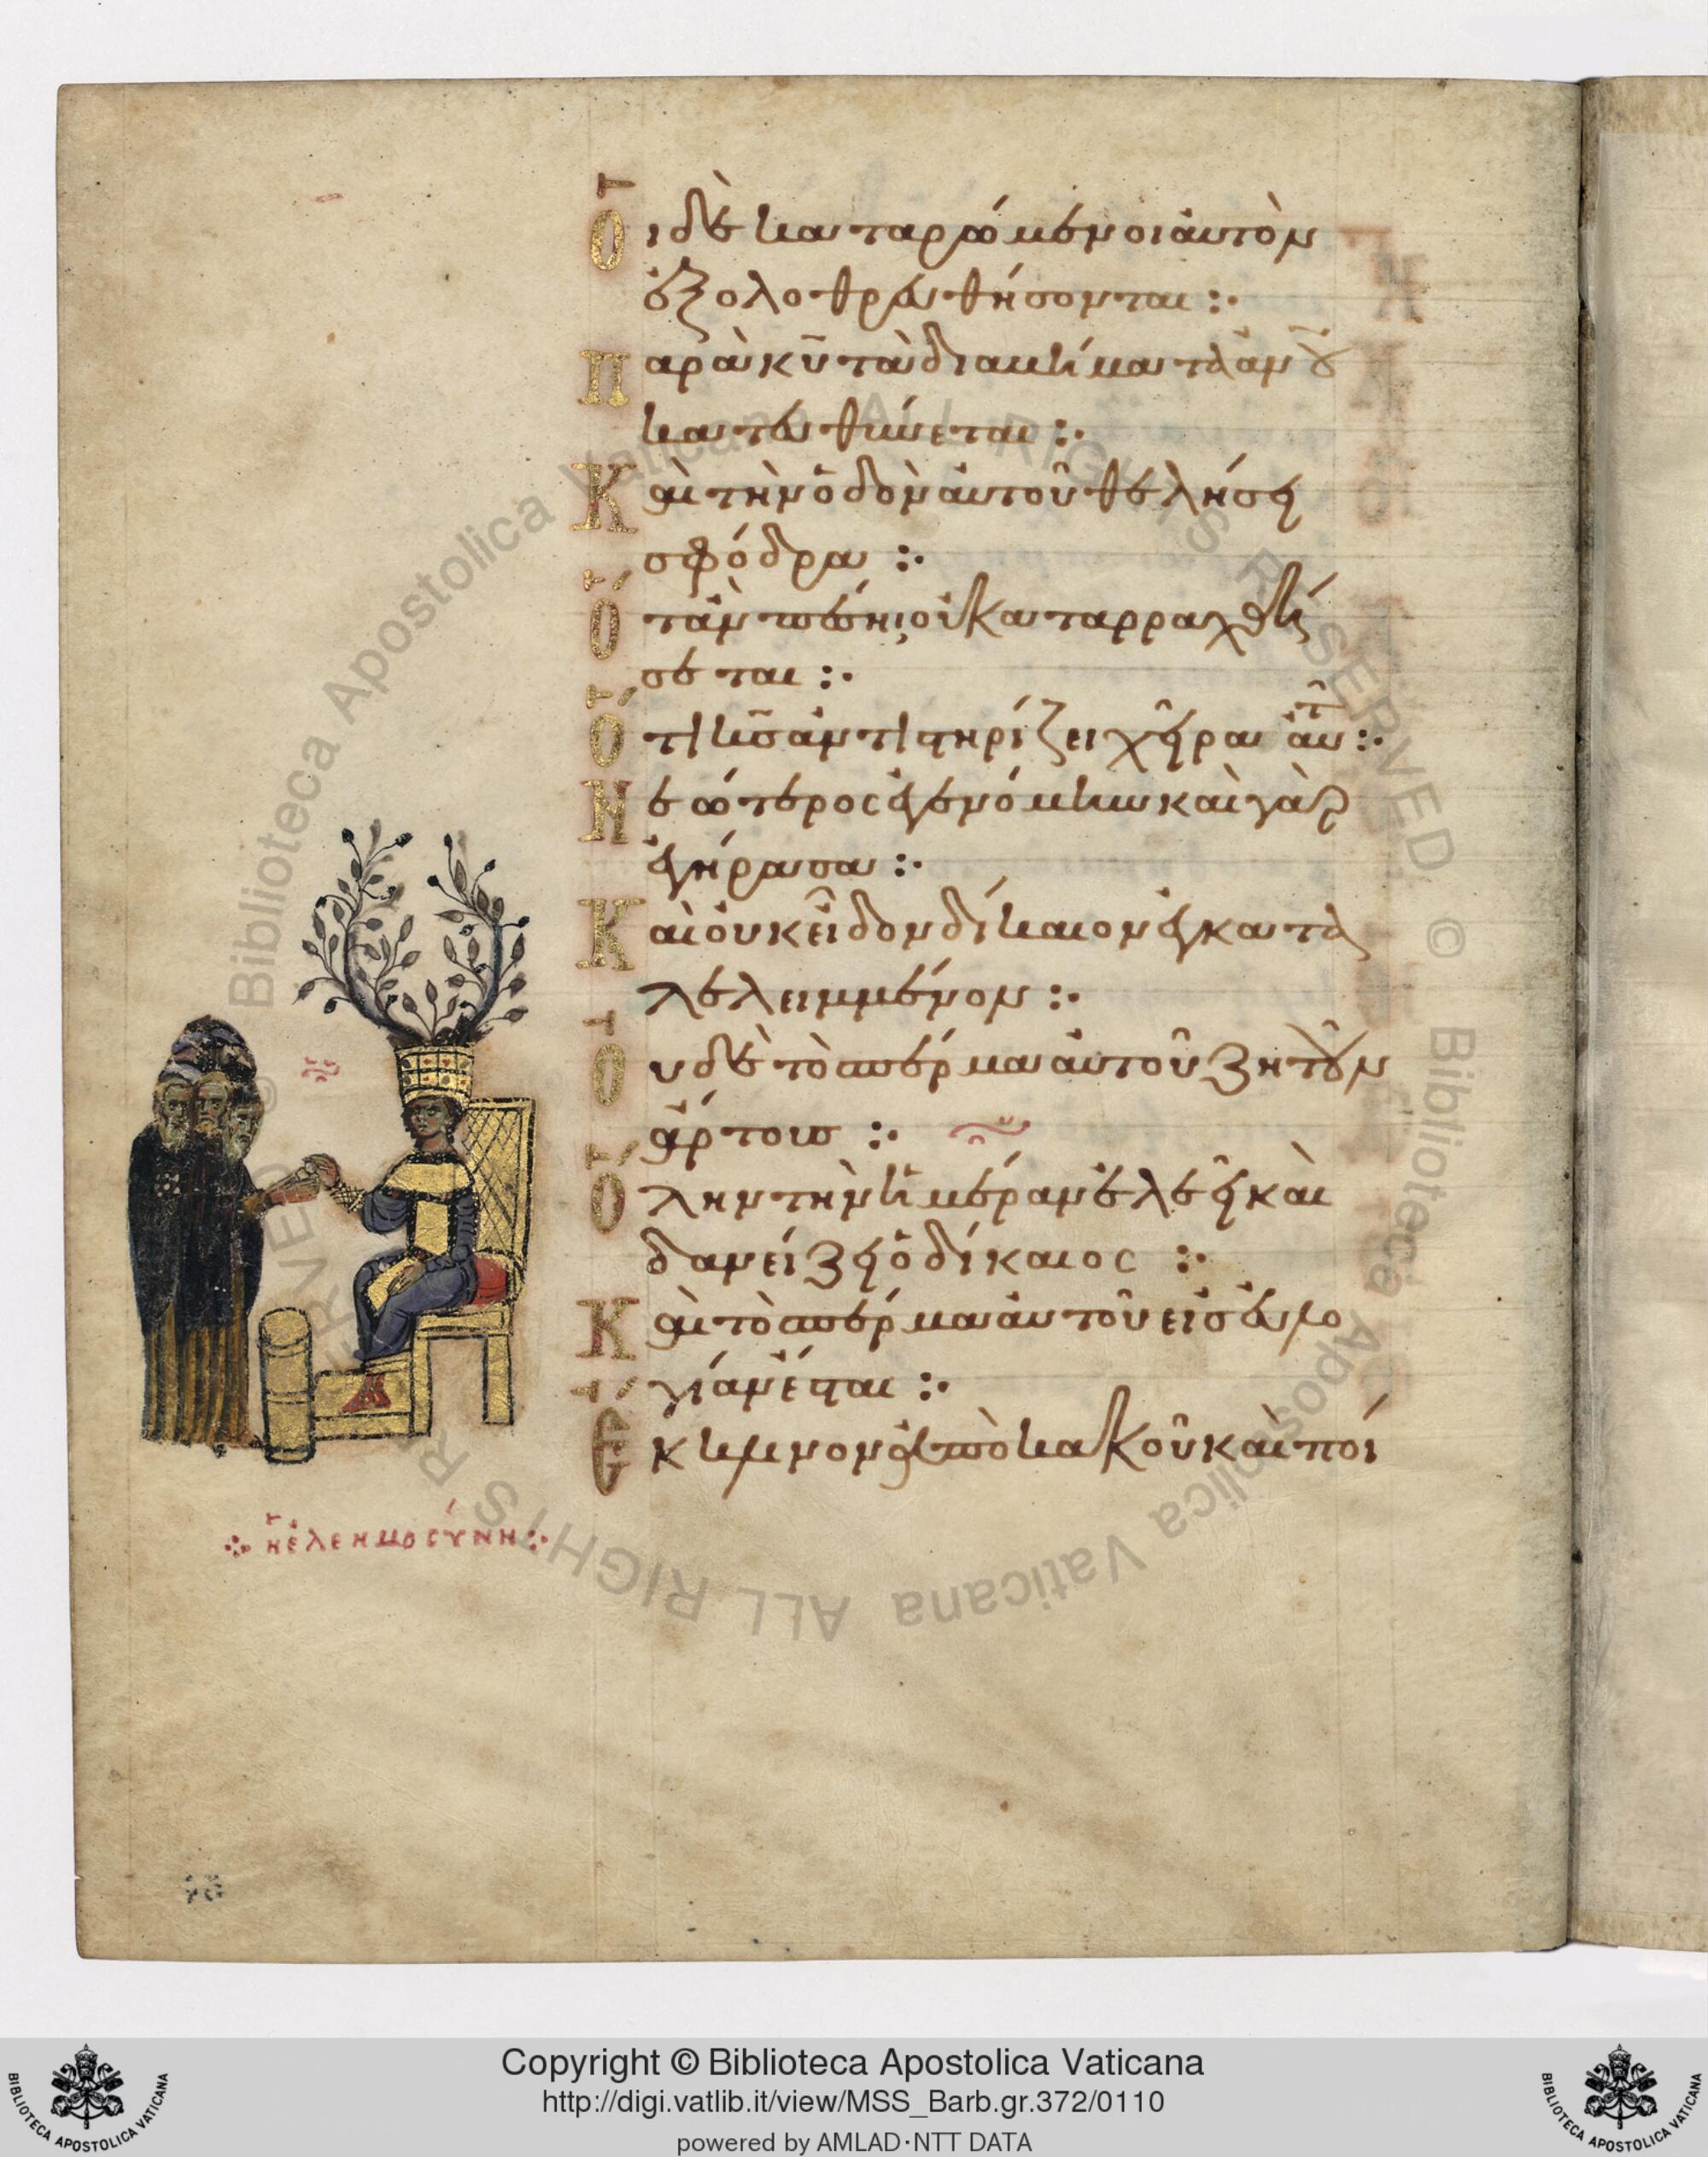 Οἱ δὲ καταρώμενοι αὐτὸν
ἐξολοθρευθήσονται :·
Παρὰ κῡ τὰ διαβήματα ἀνοῦ
κατευθύνεται :·
Καὶ τὴν ὁδὸν αὐτοῦ θελήσει
σφόδρα :·
Ὅταν πέσηι, οὐ καταρραχθή
σεται :·
Ὅτι κ̅σ̅ ἀντιστηρίζει χεῖρα αὐτ :·
Νεώτερος ἐγενόμην καὶ γὰρ
ἐγήρασα :·
Καὶ οὐκ εἶδον δίκαιον ἐγκατα
λελειμμένον :·
Οὐδὲ τὸ σπέρμα αὐτοῦ ζητοῦν
ἄρτους :·
Ὅλην τὴν ἡμέραν ἐλεεῖ καὶ
δανείζει ὁ δίκαιος :·
Καὶ τὸ σπέρμα αὐτοῦ εἰς εὐλο
γίαν ἔσται :·
Ἔκκλινον ἀπὸ κακοῦ καὶ ποί
ἡ ἐλεημοσύνη :·
© Biblioteca Apostolica Vaticana ALL RIGHTS RESERVED
© Biblioteca Apostolica Vaticana ALL RIGHTS RESERVED
Copyright © Biblioteca Apostolica Vaticana
http://digi.vatlib.it/view/MSS_Barb.gr.372/0110
powered by AMLAD·NTT DATA
BIBLIOTECA APOSTOLICA VATICANA
BIBLIOTECA APOSTOLICA VATICANA